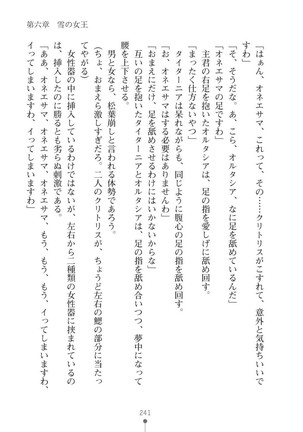 第六章　雪の女王
「はぁん、オネエサマ、これって、その……クリトリスがこすれて、意外と気持ちいいで
すわ」
「そ、そうだな。あ、こら、オルタシア、なに足を舐めているんだ」
「オネエサマの足ですわ」
主君の右足を抱いたオルタシアは、足の指を愛しげに舐め回す。
「まったく仕方ないやつ」
タイターニアは呆れながらも、同じように腹心の足の指を舐め回す。
「あ、オネエサマはする必要はありませんわ」
「おまえにだけ、足を舐めさせるわけにはいかないからな」
互いの足を抱いたタイターニアとオルタシアは、足の指を舐め合いつつ、夢中になって
腰を上下させる。
男と女なら、松葉崩しと言われる体勢であろう。
ちと、おまえら激しすぎだろ。二人のクリトリスが、ちょうど左右の鰓の部分に当たっ
てやがる」
女性器の中に挿入しているわけではないが、左右から二種類の女性器に挟まれているの
は、挿入したのに勝るとも劣らぬ刺激である。
「ああ、オネエサマ、もう、もう、もう、イってしまいますわ、オネエサマ、イってしま
いますわ、オネエサマ、もう、もう、イってしまいますわ」
241